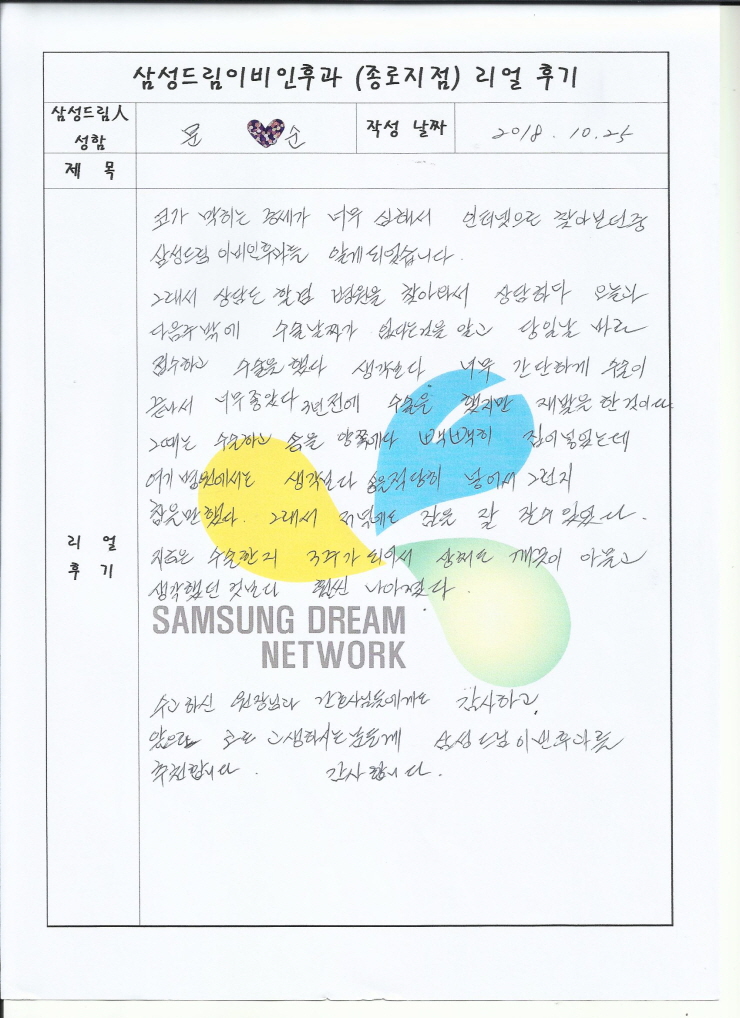 삼성드림이비인후과 (종로지점) 리얼 후기
삼성드림人 성함
문 순
작성 날짜
2018. 10. 25
제 목
리 얼 후 기
코가 막히는 증세가 너무 심해서 인터넷으로 찾아보던중
삼성드림 이비인후과를 알게되었습니다.
그래서 상담도 할겸 병원을 찾아와서 상담하다 오늘과
다음주 밖에 수술날짜가 없다는것을 알고 당일날 바로
접수하고 수술을 했다 생각보다 너무 간단하게 수술이
끝나서 너무좋았다 3년전에 수술을 했지만 재발을 한것이다
그때는 수술하고 솜을 양쪽에다 빽빽히 집어넣었는데
여기병원에서는 생각보다 솜을적당히 넣어서 그런지
참을만했다. 그래서 저녁에도 잠을 잘 잘수있었다.
지금은 수술한지 3주가 되어서 상처도 깨끗이 아물고
생각했던 것보다 훨씬 나아졌다.
SAMSUNG DREAM
NETWORK
수고하신 원장님과 간호사님들에게도 감사하고,
앞으로 코로 고생하시는분들께 삼성드림이비인후과를
추천합니다. 감사합니다.